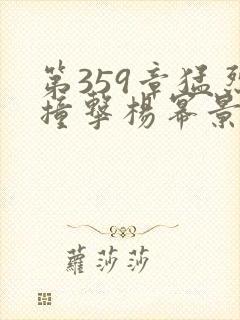 第359章猛烈
撞擊楊冪景
蘿莎莎